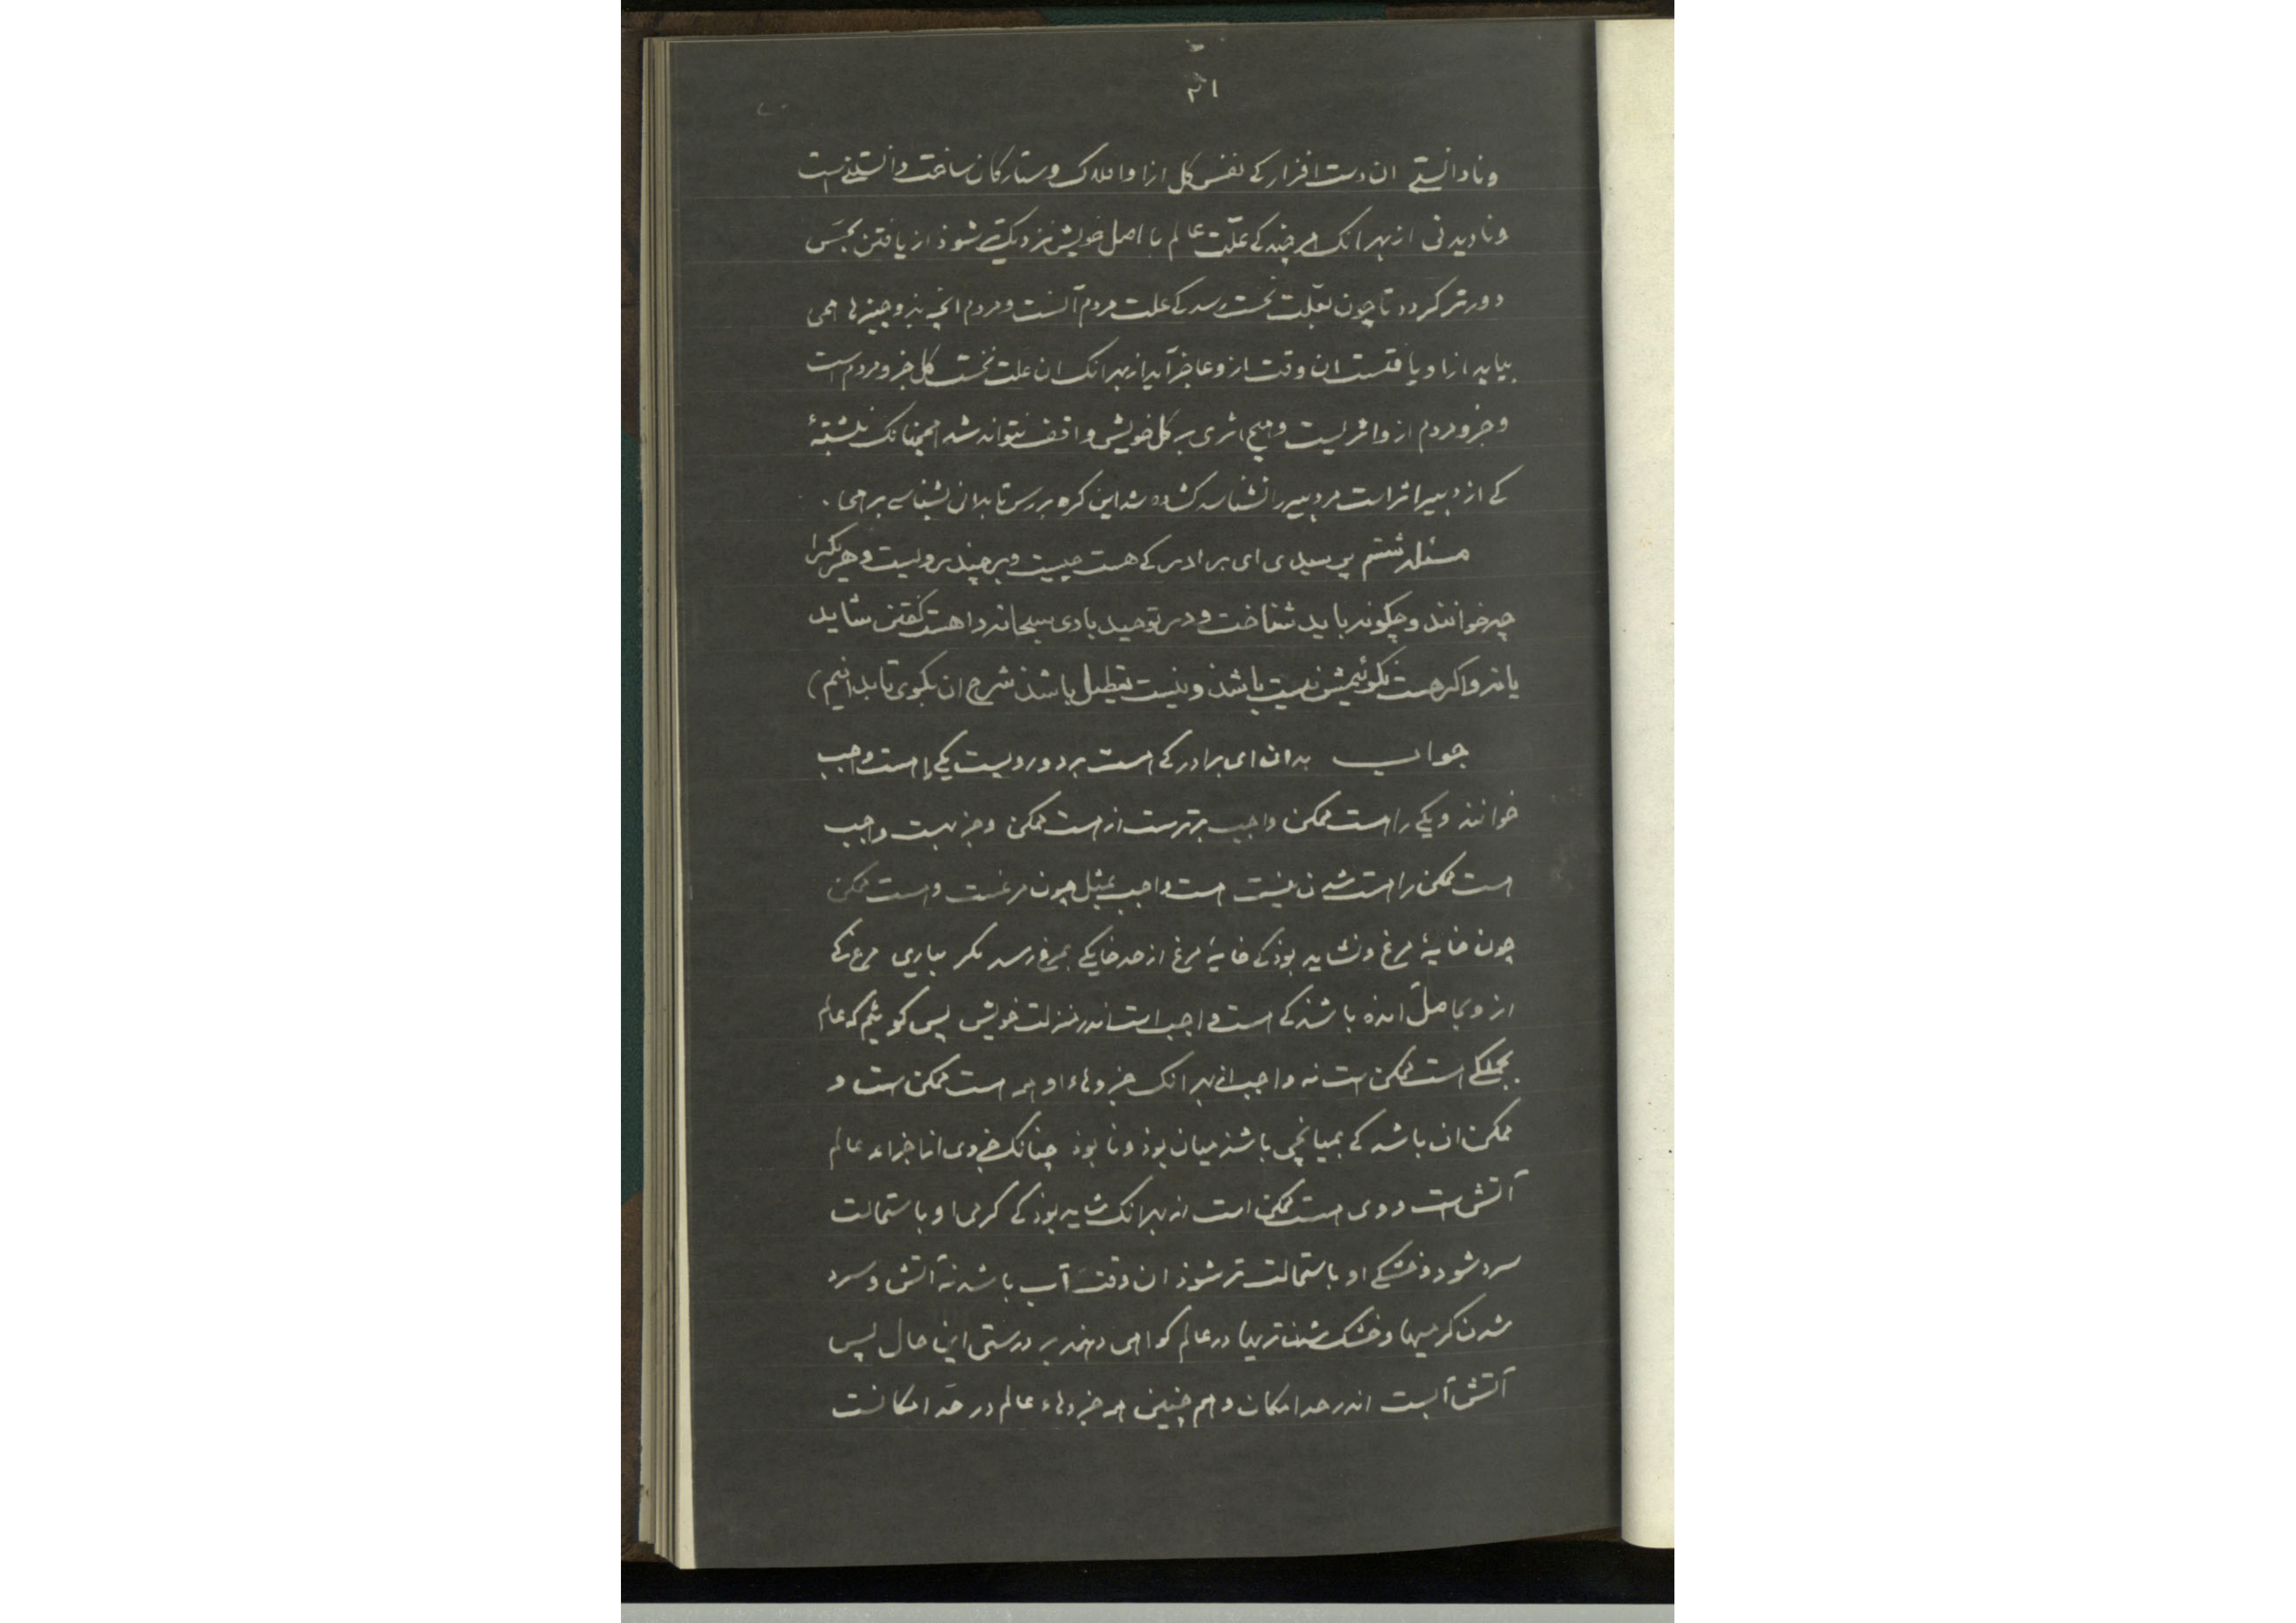 ۲۱
ونادانستے ان دست افزار کے نفس کل ازا وافلاک وستارکان ساخت دانستنے است
ونادیدنی ازبهر انک هر چند کے علّت عالم با اصل خویش نزدیکتر شوذ ازیافتن بحسّ
دورتر کردد تا چون بعلّت نخست رسد کے علت مردم آنست ومردم انچه بذو چیزها همی
بیابد ازا ویافتست ان وقت ازو عاجز آید ازبهر انک ان علت نخست کل جزو مردم است
وجزو مردم ازو اثریست وهیچ اثری بر کل خویش واقف نتواند شد همچنانک نبشتهٔ
کے از دبیر اثر است مر دبیر را نشناسد کشاده شد این کره بررس تا بدانی بشناسے برهی .
مسئله ششم پرسیدی ای برادر کے هست چیست وبر چند رویست وهر یکیرا
چه خوانند وچکونه باید شناخت ودر توحید باری سبحانه را هست کفتن شاید
یا نه واکر هست نکوئیمش نیست باشذ ونیست تعطیل باشذ شرح ان بکوی تا بدانیم)
جواب بدان ای برادر کے هست بر دو رویست یکے را هست واجب
خوانند ویکے را هست ممکن واجب برترست از هست ممکن وجز بهست واجب
هست ممکن را هست شدن نیست هست واجب بمثل چون مرغست وهست ممکن
چون خایهٔ مرغ ونشاید بوذ کے خایهٔ مرغ از حد خایکے بمرغی رسد مکر بیاری مرغ کے
ازو بحاصل امده باشذ کے هست واجب است اندر منزلت خویش پس کوئیم که عالم
بجملکے هست ممکن است نه واجب ازبهر انک جزوهاء او همه هست ممکن است و
ممکن ان باشد کے بمیانجی باشذ میان بوذ ونابوذ چنانک جزوی از اجزاء عالم
آتش است ووی هست ممکن است ازبهر انک شاید بوذ کے کرمی او باستحالت
سرد شود وخشکے او باستحالت تر شوذ ان وقت آب باشد نه آتش وسرد
شدن کرمیها وخشک شدن تریها در عالم کواهی دهند بر درستی این حال پس
آتش آبست اندر حد امکان وهم چنین همه جزوهاء عالم در حدّ امکانست